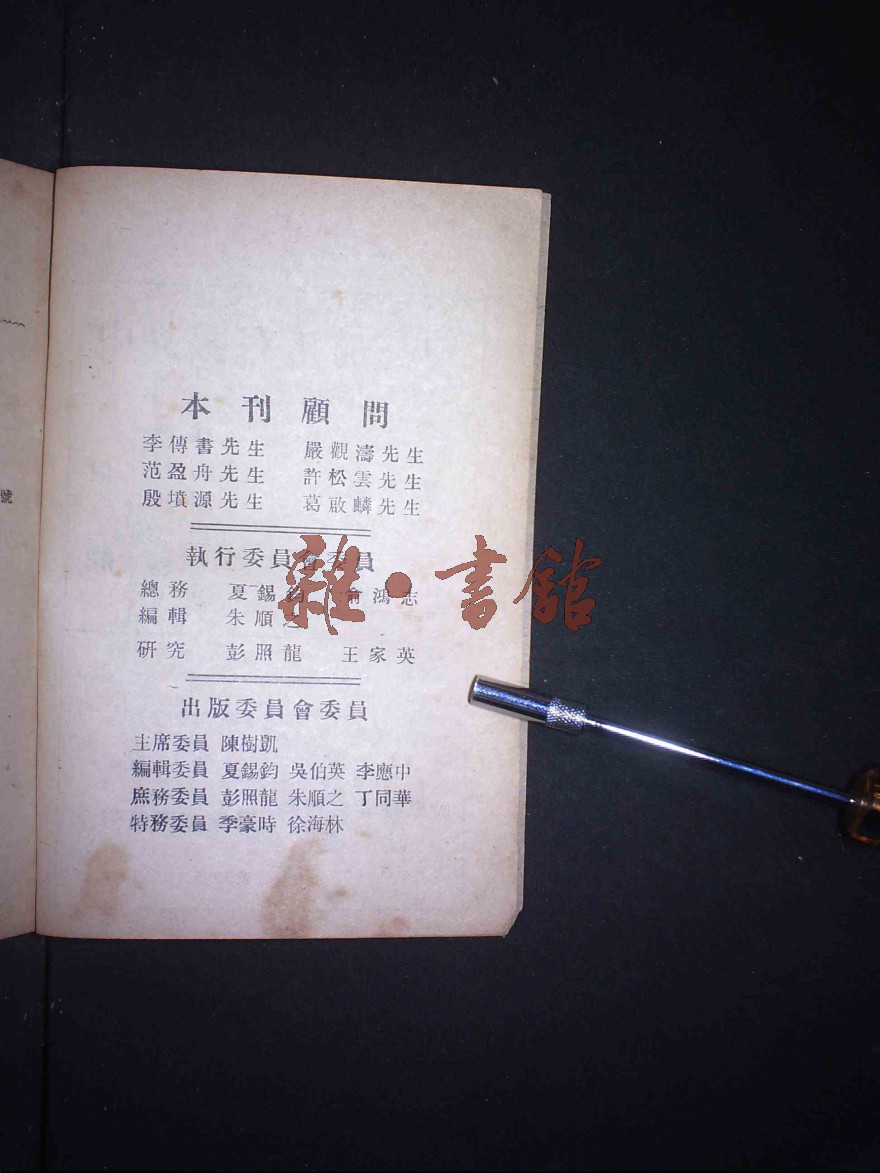 號
本刊顧問
李傳書先生 嚴觀濤先生
范盈舟先生 許松雲先生
殷墳源先生 葛啟麟先生
執行委員會委員
總務 夏錫鈞 俞鴻志
編輯 朱順之
研究 彭照龍 王家英
出版委員會委員
主席委員 陳樹凱
編輯委員 夏錫鈞 吳伯英 李應中
庶務委員 彭照龍 朱順之 丁同華
特務委員 季豪時 徐海林
雜·書館